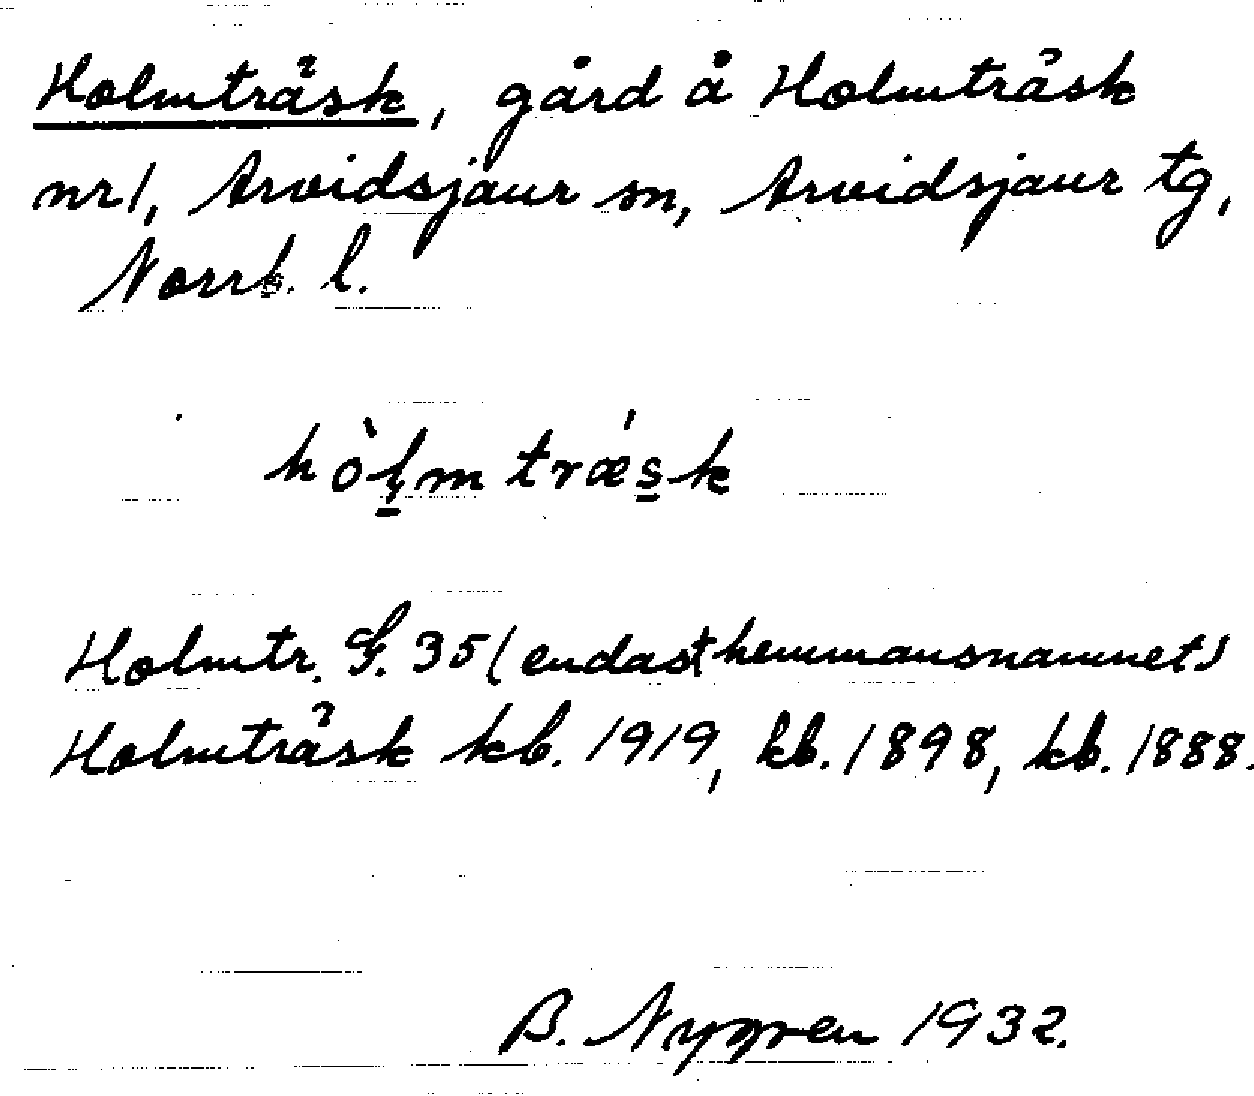 Holmträsk, gård å Holmträsk
nr 1, Arvidsjaur sn, Arvidsjaur tg,
Norrb. l.
hòl̠m træ´s̠k
Holmtr. G. 35 (endast hemmansnamnet)
Holmträsk kb. 1919, kb. 1898, kb. 1888.
B. Nygren 1932.